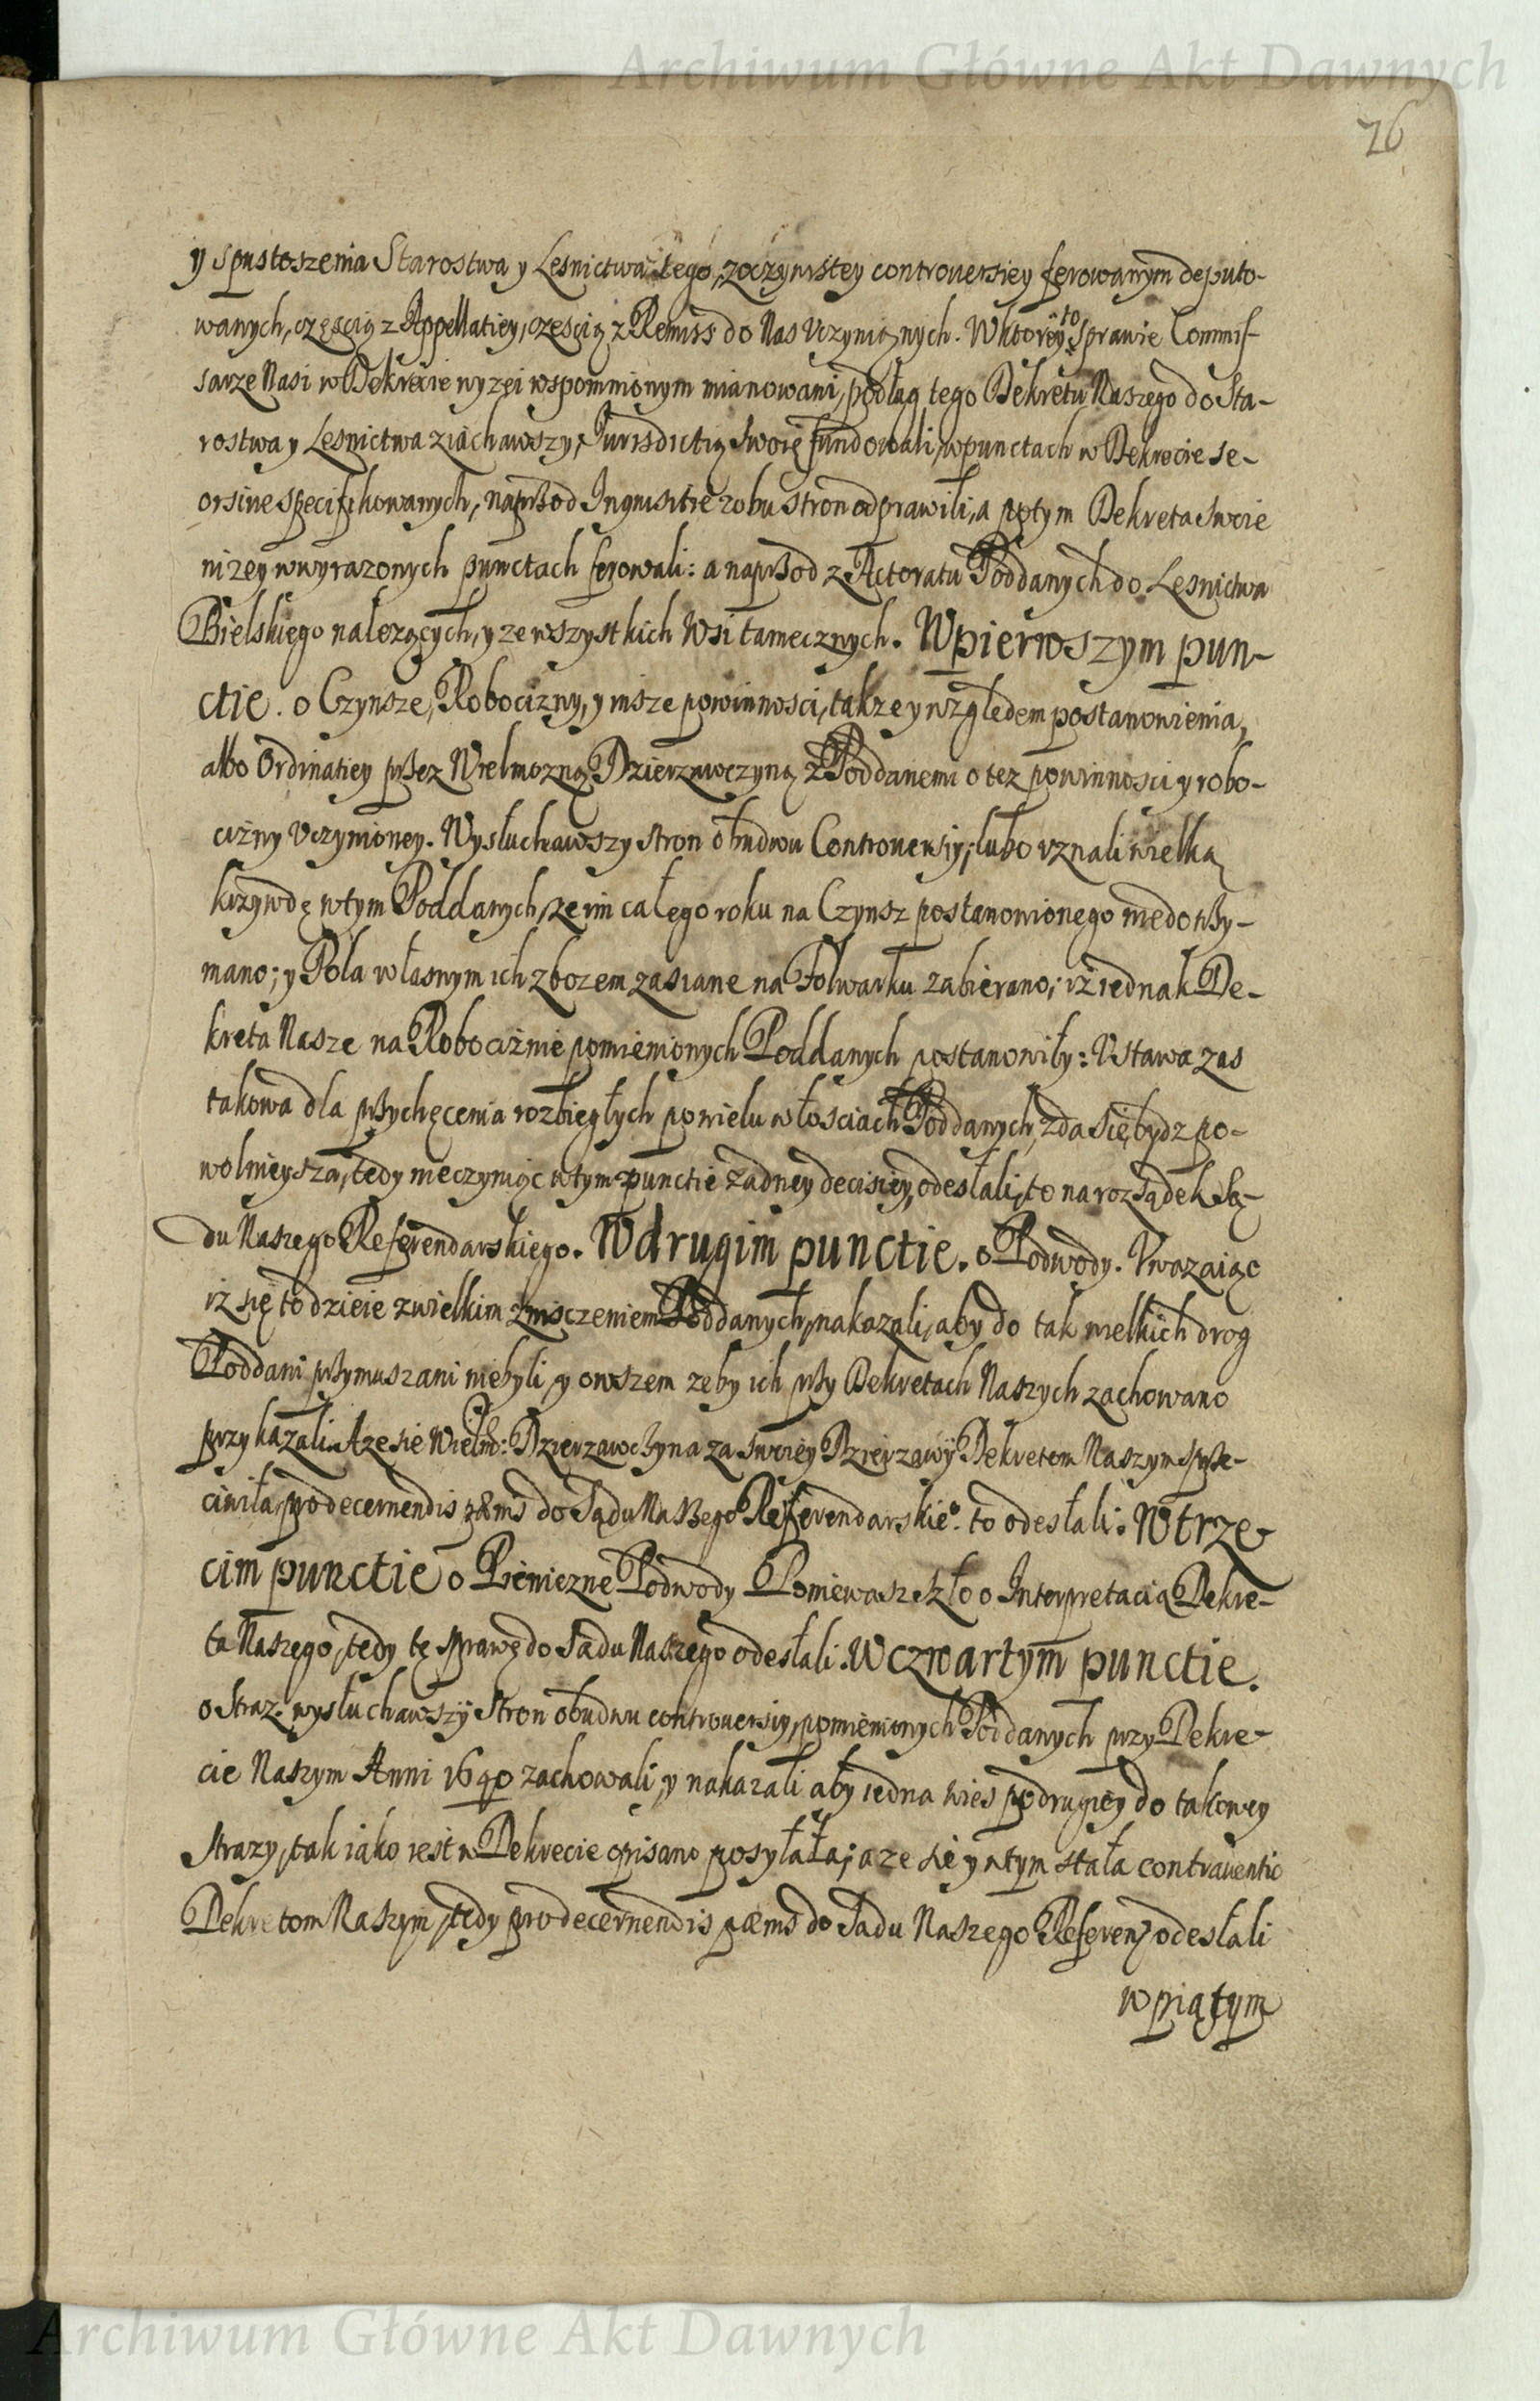 Archiwum Główne Akt Dawnych
76
y spustoszenia Starostwa y Lesnictwa tego, zoczywistey controuersiey ferowanym deputo-
wanych, częścią z Appellatiey, częścią z Remiss do Nas Vczynionych. Wktorey to sprawie Commis-
sarze Nasi w Dekrecie wyzei wspomnionym mianowani, podług tego Dekretu Naszego do Sta-
rostwa y Lesnictwa ziachawszy, Jurisdictią swoię fundowali, wpunctach w Dekrecie se-
orsiue specifikowanych, naprzod Inquisitie zobu stron odprawili, a potym Dekreta swoie
nizey wwyrazonych punctach ferowali: a naprzod z Actoratu Poddanych do Lesnictwa
Bielskiego nalezących, y ze wszystkich Wsi tamecznych. Wpierwszym pun-
ctie. o Czynsze, Robocizny, y insze powinnosci, takze y względem postanowienia,
albo Ordinatiey przez Wielmozną Dzierzawczyną z Poddanemi o tez powinnosci y robo-
cizny Vczynioney. Wysłuchawszy stron obudwu Controuersiy, lubo vznali wielką
krzywdę wtym Poddanych, ze im całego roku na Czynsz postanowionego niedotrzy-
mano; y Pola własnym ich zbozem zasiane na Folwarku zabierano; iz iednak De-
kreta Nasze na Robociznie pomienionych Poddanych postanowiły: Vstawa zas
takowa dla przychęcenia rozbiegłych po wielu włosciach Poddanych, zda się bydz po-
wolnieysza, tedy nieczyniąc wtym punctie zadney decisiey, odesłali, to na rozsądek Są-
du Naszego Referendarskiego. Wdrugim punctie. o Podwody. Vwazaiąc
iz się to dzieie zwielkim zniszczeniem Poddanych, nakazali, aby do tak wielkich drog
Poddani przymuszani niebyli, y owszem zeby ich przy Dekretach Naszych zachowano
przykazali. A ze sie Wielm: Dzierzawczyna za swoiey Dzierzawy Dekretom Naszym sprze-
ciwiła, pro decernendis pænis do Sądu Naszego Referendarskieº. to odesłali. Wtrze-
cim punctie o Pieniezne Podwody Poniewasz szło o Interpretacią Dekre-
ta Naszego, tedy tę sprawę do Sadu Naszego odesłali. Wczwartym punctie.
o Straz. wysłuchawszy Stron obudwu controuersiy, pomienionych Poddanych przy Dekre-
cie Naszym Anni 1640 zachowali, y nakazali aby iedna wies podrugiey do takowey
Strazy, tak iako iest w Dekrecie opisano posyłała; a ze sie y wtym stała contrauentio
Dekretom Naszym, tedy pro decernendis pænis do Sadu Naszego Referen: odesłali
w piątym
Archiwum Główne Akt Dawnych